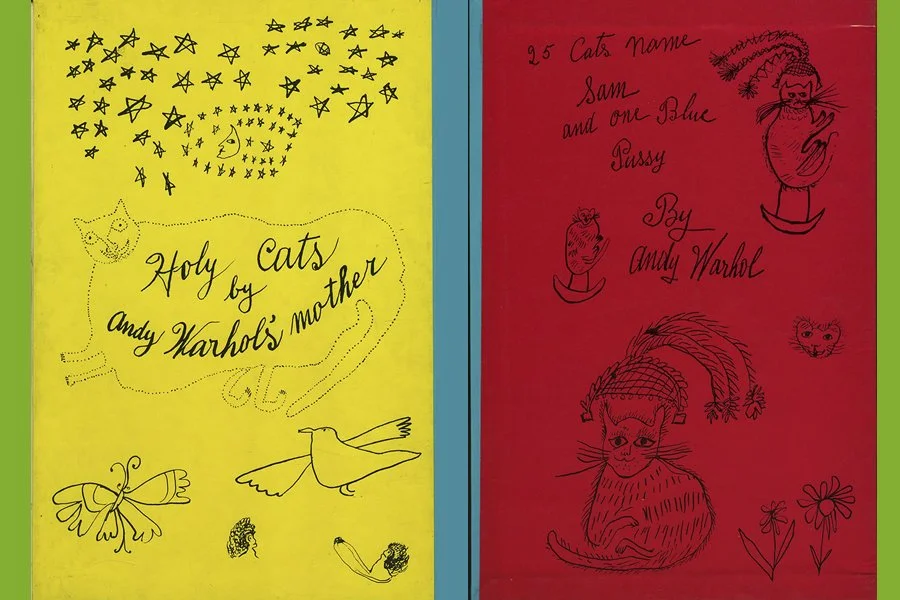 Holy Cats
by
Andy Warhol's mother
25 Cats Name
Sam
and one Blue
Pussy
By
Andy Warhol